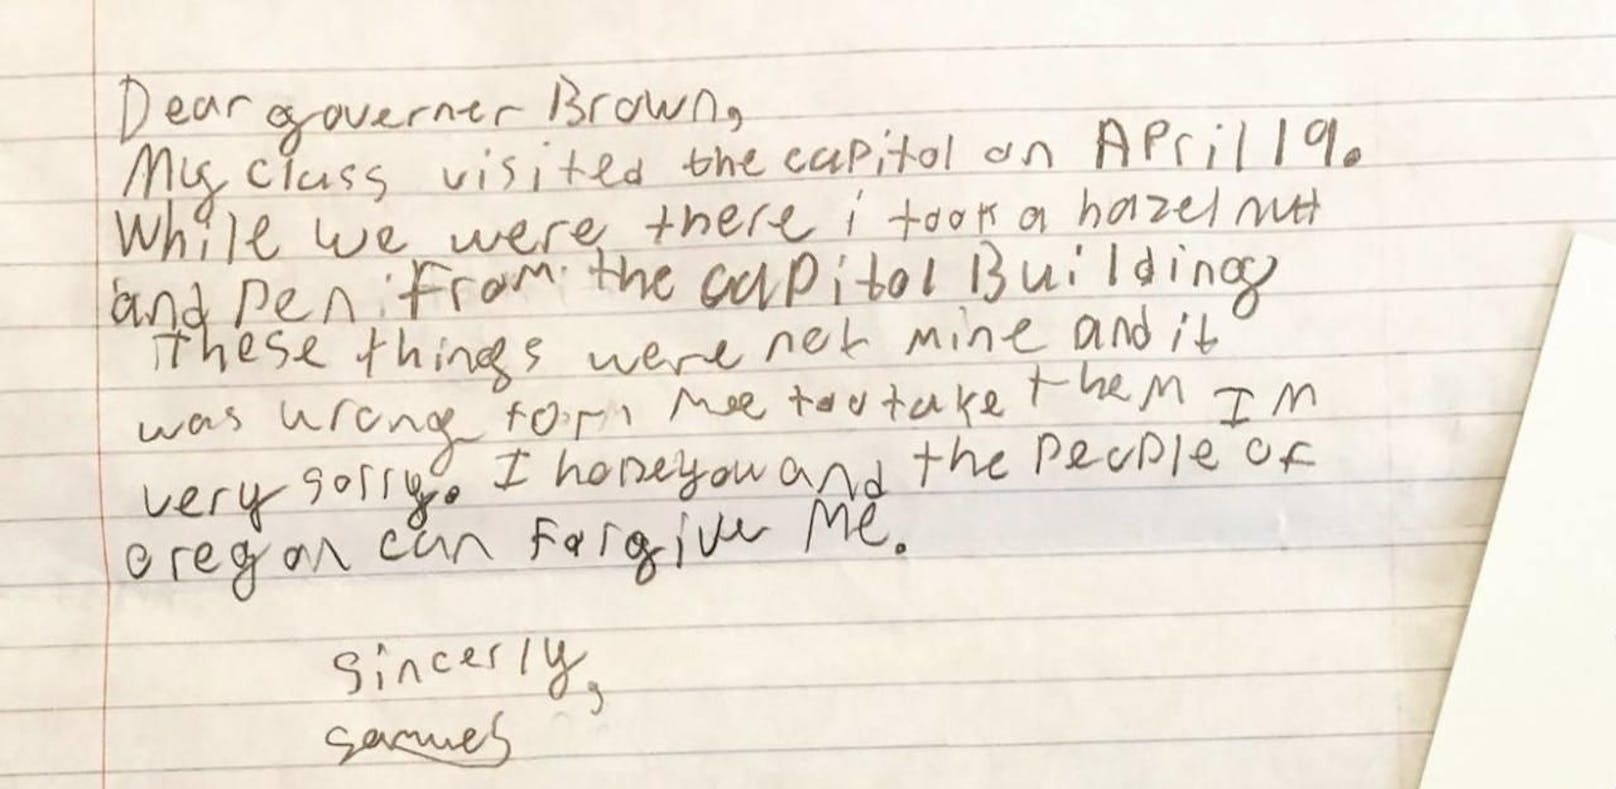 Dear governer Brown,
My class visited the capitol on April 19.
While we were there i took a hazel nutt
and pen from the capitol Building
these things were not mine and it
was wrong for me to take them Im
very sorry. I hope you and the people of
oregon can forgive Me.
sincerly,
samuel